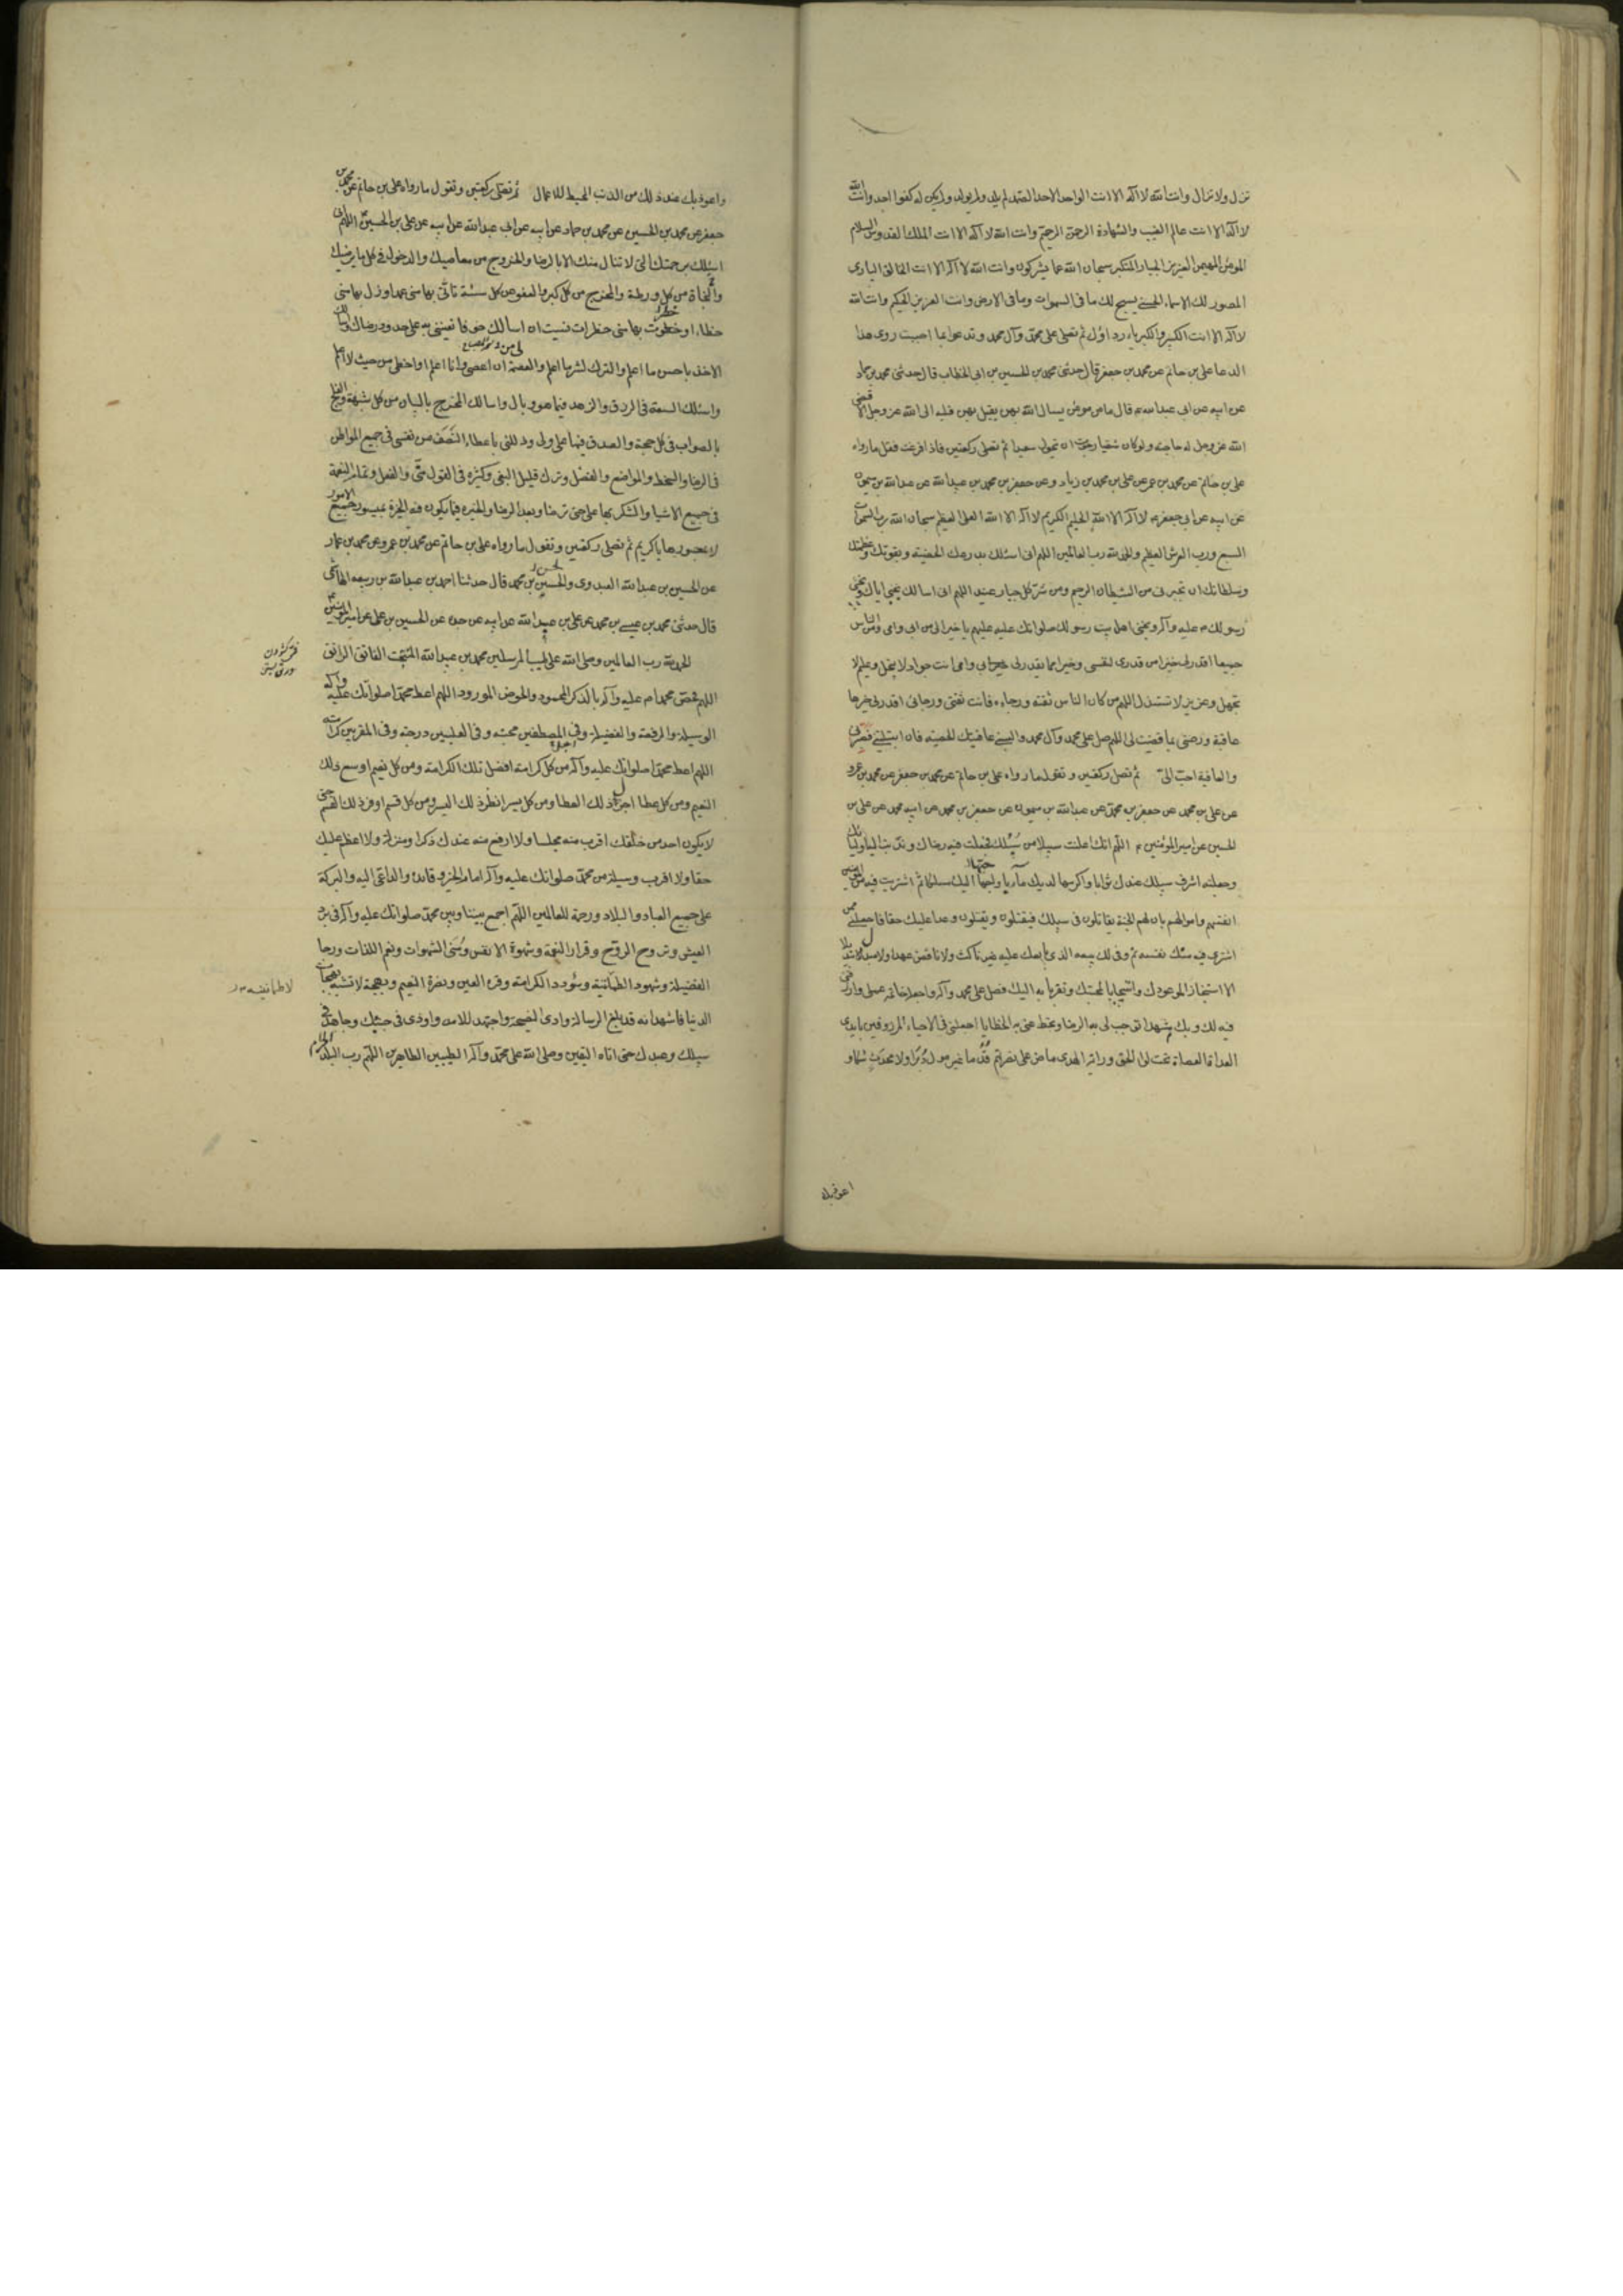 تزل ولا تزال وانت الله لا اله الا انت الواحد الاحد الصمد لم يلد ولم يولد ولم يكن له كفوا احد وانت الله
لا اله الا انت عالم الغيب والشهادة الرحمن الرحيم وانت الله لا اله الا انت الملك القدوس السلام
المؤمن المهيمن العزيز الجبار المتكبر سبحان الله عما يشركون وانت الله لا اله الا انت الخالق البارى
المصور لك الاسماء الحسنى يسبح لك ما فى السموات وما فى الارض وانت العزيز الحكيم وانت الله
لا اله الا انت الكبير والكبرياء رداؤك ثم تصلى على محمد وآل محمد وتدعو بما احببت روى هذا
الدعا على بن حاتم عن محمد بن جعفر قال حدثنى محمد بن الحسين بن ابى الخطاب قال حدثنى محمد بن حماد
عن ابيه عن ابى عبد الله قال ما من مؤمن يسال الله بهن يقبل بهن قلبه الى الله عز وجل الا قضى
الله عز وجل له حاجته ولو كان شقيا رجوت ان يحول سعيدا ثم تصلى ركعتين فاذا فرغت فقل ما رواه
على بن حاتم عن محمد بن عمر عن على بن محمد بن زياد وعن جعفر بن محمد بن عبيد الله عن عبد الله بن ميمون
عن ابيه عن ابى جعفر لا اله الا الله الحليم الكريم لا اله الا الله العلى العظيم سبحان الله رب السموات
السبع ورب العرش العظيم والحمد لله رب العالمين اللهم انى اسئلك بدرعك الحصينه وبقوتك وعظمتك
وسلطانك ان تجيرنى من الشيطان الرجيم ومن شر كل جبار عنيد اللهم انى اسالك بحبى اياك وبحبى
رسولك عليه وآله وبحبى اهل بيت رسولك صلواتك عليه عليهم يا خيرا لى من ابى وامى والناس
جميعا اقدر لى خيرا من قدرى لنفسى وخيرا مما يقدر لى ابى وامى انت جواد لا يبخل وحليم لا
يجهل وعزيز لا تستذل اللهم من كان الناس ثقته ورجاءه فانت ثقتى ورجائى اقدر لى خيرها
عاقبة ورضنى بما قضيت لى اللهم صل على محمد وآل محمد والبسنى عافيتك الحصينه فان ابتليتنى فصبرنى
والعافية احب الىّ ثم تصل ركعتين وتقول ما رواه على بن حاتم عن محمد بن جعفر عن محمد بن عمرو
عن على بن محمد عن جعفر بن محمد عن عبد الله بن ميمون عن جعفر بن محمد عن ابيه محمد عن على بن
الحسين عن امير المؤمنين اللهم انك اعلنت سبيلا من سبلك فجعلت فيه رضاك وندبت اليه اوليائك
وجعلته اشرف سبلك عندك ثوابا واكرمها لديك مآبا واحبها اليك مسلكا ثم اشتريت فيه من المؤمنين
انفسهم واموالهم بان لهم الجنة يقاتلون فى سبيلك فيقتلون ويقتلون وعدا عليك حقا فاجعلنى ممن
اشترى فيه منك نفسه ثم وفى لك ببيعه الذى بايعك عليه غير ناكث ولا ناقض عهدا ولا مبدلا تبديلا
الا استنجاز الموعودك واستيجابا لمحبتك وتقربا به اليك فصل على محمد وآله واجعله خاتمه عملى وارزقنى
فيه لك وبك مشهدا توجب لى به الرضا وتحط عنى به الخطايا اجعلنى فى الاحياء المرزوقين بايدى
العداة العصاة تحت لواء الحق وراية الهدى ماض على نصرتهم قدما غير مول دبرا ولا محدث شكا و
اعوذ بك
واعوذ بك عند ذلك من الذنب المحبط للاعمال ثم تصلى ركعتين وتقول ما رواه على بن حاتم عن محمد بن
جعفر عن محمد بن الحسين عن محمد بن حماد عن ابيه عن ابى عبد الله عن ابيه عن على بن الحسين اللهم انى
اسئلك برحمتك التى لا تنال منك الا بالرضا والخروج من معاصيك والدخول فى كل ما يرضيك
والنجاة من كل ورطة والمخرج من كل كبر والعفو عن كل سيئة تاتى بها منى عمدا وزل بها منى
خطاء او خطرت بها منى خطرات نسيت ان اسالك خوفا تعيننى به على حدود رضاك واسالك
الاخذ باحسن ما اعلم والترك لشر ما اعلم والعصمة ان اعصى وانا اعلم او اخطى من حيث لا اعلم
واسئلك السعة فى الرزق والزهد فيما هو وبال واسالك المخرج بالبيان من كل شبهة والفلج
بالصواب فى كل حجة والصدق فيها على ولى وذللنى باعطاء النصف من نفسى فى جميع المواطن
فى الرضا والسخط والتواضع والفضل وترك قليل البغى وكثيره فى القول منى والفعل وتمام النعمة
فى جميع الاشيا والشكر بها على حتى ترضا وبعد الرضا والخيره فيما يكون فيه الخيرة بميسور جميع الامور
لا بمعسورها يا كريم ثم تصلى ركعتين وتقول ما رواه على بن حاتم عن محمد بن عمرو عن محمد بن عمار
عن الحسين بن عبد الله العبدوى والحسين بن محمد قال حدثنا احمد بن عبد الله بن ربيعه الهاشمى
قال حدثنى محمد بن عيسى بن محمد عن على بن عبد الله عن ابيه عن جده عن الحسين بن على عن امير المؤمنين
الحمد لله رب العالمين وصلى الله على طيب المرسلين محمد بن عبد الله المنتجب الفاتق الراتق
اللهم فخص محمدا عليه وآله بالذكر المحمود والحوض المورود اللهم اعط محمدا صلواتك عليه وآله
الوسيلة والرفعة والفضيلة وفى المصطفين محبته وفى العليين درجته وفى المقربين كرامته
اللهم اعط محمدا صلواتك عليه وآله من كل كرامة افضل تلك الكرامة ومن كل نعيم اوسع ذلك
النعيم ومن كل عطا اجزل ذلك العطا ومن كل يسر انظر ذلك اليسر ومن كل قسم اوفر ذلك القسم حتى
لا يكون احد من خلقك اقرب منه مجلسا ولا ارفع منه عندك ذكرا ومنزلة ولا اعظم عليك
حقا ولا اقرب وسيلة من محمد صلواتك عليه وآله امام الخير وقائده والداعى اليه والبركة
على جميع العباد والبلاد ورحمة للعالمين اللهم اجمع بيننا وبين محمد صلواتك عليه وآله فى برد
العيش وتروح الروح وقرار النعمة وشهوة الانفس ومنى الشهوات ونعم اللذات ورجا
الفضيلة وشهود الطمانينة وسودد الكرامة وقره العين ونضرة النعيم وبهجة لا تشبه بهجات
الدنيا فاشهد انه قد بلغ الرسالة وادى النصيحة واجتهد للامه واوذى فى جنبك وجاهد فى
سبيلك وعبدك حتى اتاه اليقين وصلى الله على محمد وآله الطيبين الطاهرين اللهم رب البلد الحرام